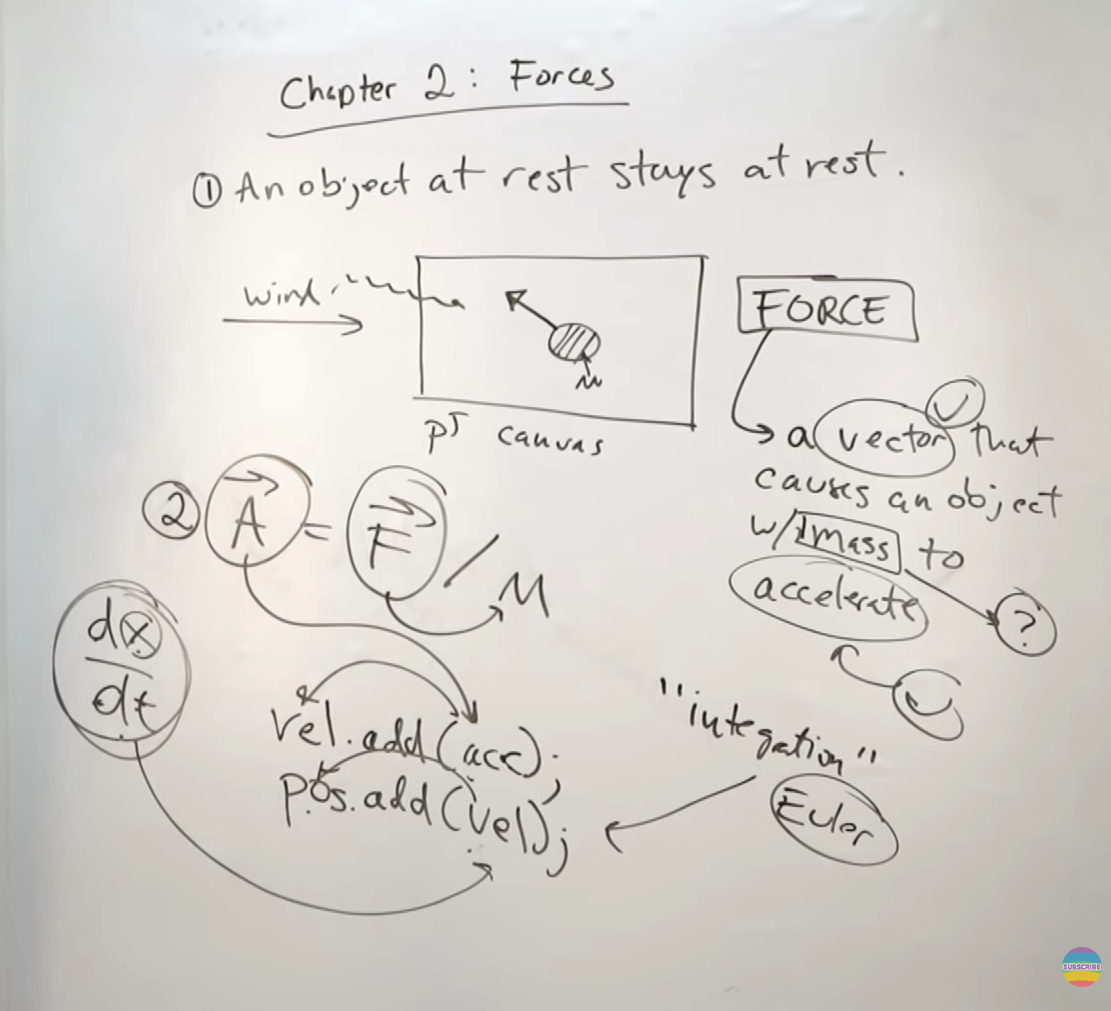 Chapter 2: Forces
① An object at rest stays at rest.
wind
FORCE
p5 canvas
a vector that
causes an object
w/ mass to
accelerate
?
② A = F / M
dx
dt
vel.add(acc);
pos.add(vel);
"integation"
Euler
SUBSCRIBE